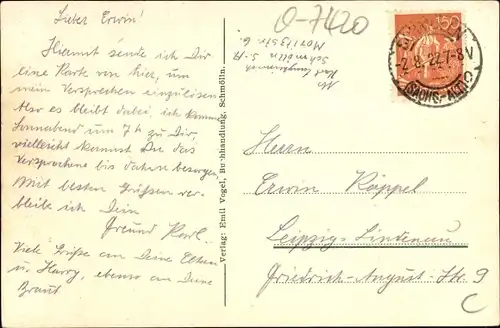 Lieber Erwin!
Hiermit sende ich Dir
eine Karte von hier, um
mein Versprechen einzulösen
Also es bleibt dabei, ich komme
Sonnabend um 7h zu Dir,
vielleicht kannst Du das
Versprochene bis dahin besorgen
Mit besten Grüßen ver-
bleibe ich Dein
Freund Karl.
Viele Grüße an Deine Eltern
u. Harry, ebenso an Deine
Braut
Verlag: Emil Vogel, Buchhandlung, Schmölln.
O-7420
Schmölln S-A
150
-2.8.22.7-8V
(SACHS.-ALT.)
Herrn
Erwin Röppel
Leipzig-Lindenau
Friedrich-August-Str. 9
C